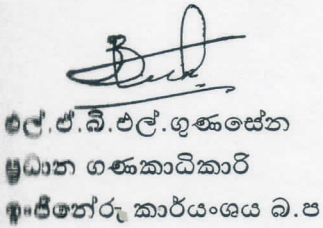 එල්.ඒ.බී.එල්.ගුණසේන
ප්‍රධාන ගණකාධිකාරි
ඉංජිනේරු කාර්යංශය බ.ප